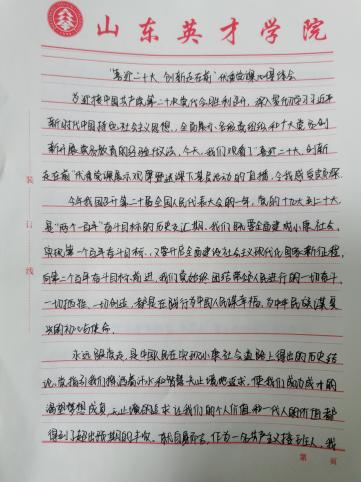 山东英才学院
"喜迎二十大,创新走在前"优秀党课心得体会
为迎接中国共产党第二十次党代会胜利召开,深入学习习近平
新时代中国特色社会主义思想,全面展示各级党组织和广大党员创
新开展党员教育的经验做法,今天,我们观看了"喜迎二十大,创新
走在前"优秀党课展示观摩暨送课下基层活动的直播,令我感受颇深。
今年我国召开第二十届全国人民代表大会的一年,党的十九大到二十大
是"两个一百年"奋斗目标的历史交汇期。我们既要全面建成小康社会,
实现第一个百年奋斗目标,又要开启全面建设社会主义现代化国家新征程,
向第二个百年奋斗目标前进。我们党始终团结带领人民进行的一切奋斗、
一切牺牲、一切创造,都是在践行为中国人民谋幸福,为中华民族谋复
兴的初心与使命。
永远跟党走,是中国人民在实现小康社会道路上得出的历史结
论,党指引我们挥洒着汗水和智慧无止境地追求,使我们成功成才的
渴望梦想成真,无止境的追求让我们的个人价值和一代人的价值都
得到了超出预期的丰收,就自身而言,作为一名共产主义接班人,我
装
订
线
第 页